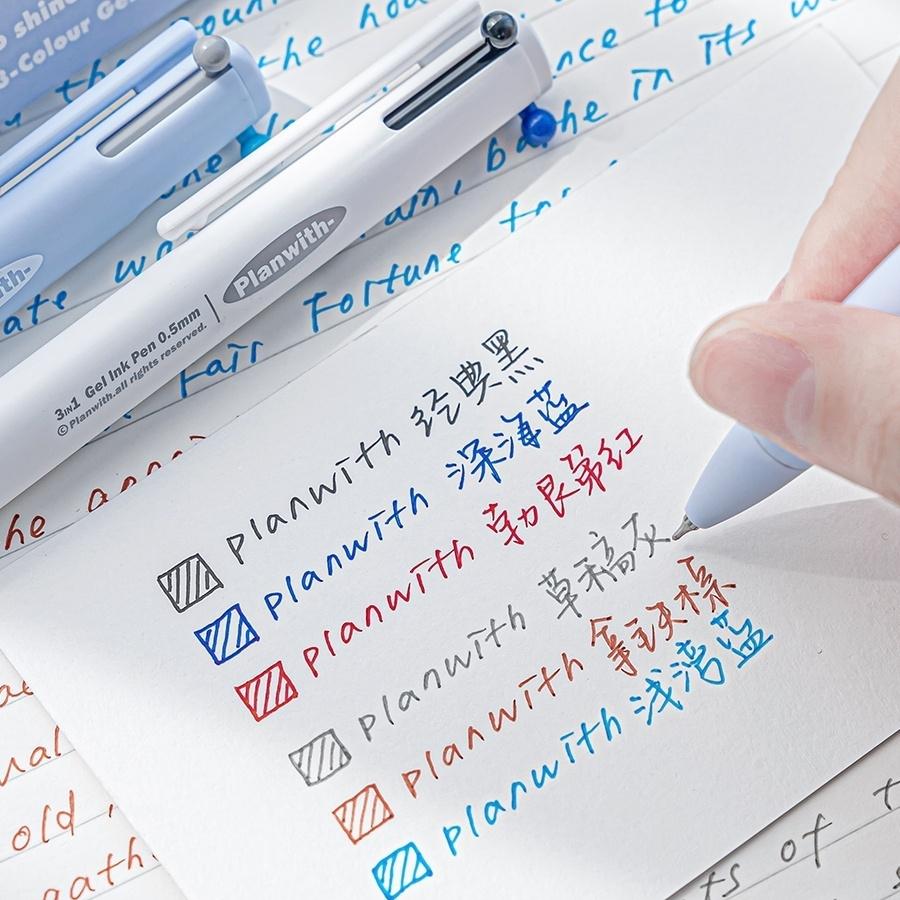 o shine
3-Colour Gel
the hou
nce to
in its w
bathe
ain,
ate wa
Fortune
Fair
Planwith-
3IN1 Gel Ink Pen 0.5mm
©Planwith.all rights reserved.
ith-
planwith 经典黑
planwith 深海蓝
planwith 勃艮第红
planwith 草稿灰
planwith 拿铁棕
planwith 浅湾蓝
he
ual
old,
gath
ts of t